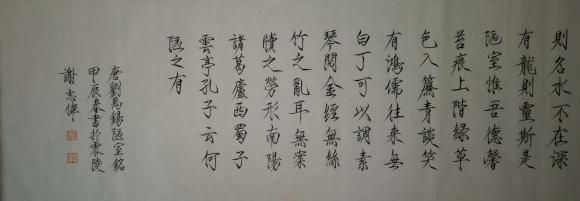 則名水不在深
有龍則靈斯是
陋室惟吾德馨
苔痕上階綠草
色入簾青談笑
有鴻儒往來無
白丁可以調素
琴閱金經無絲
竹之亂耳無案
牘之勞形南陽
諸葛廬西蜀子
雲亭孔子云何
陋之有
唐劉禹錫陋室銘
甲辰春書於零陵
謝志偉